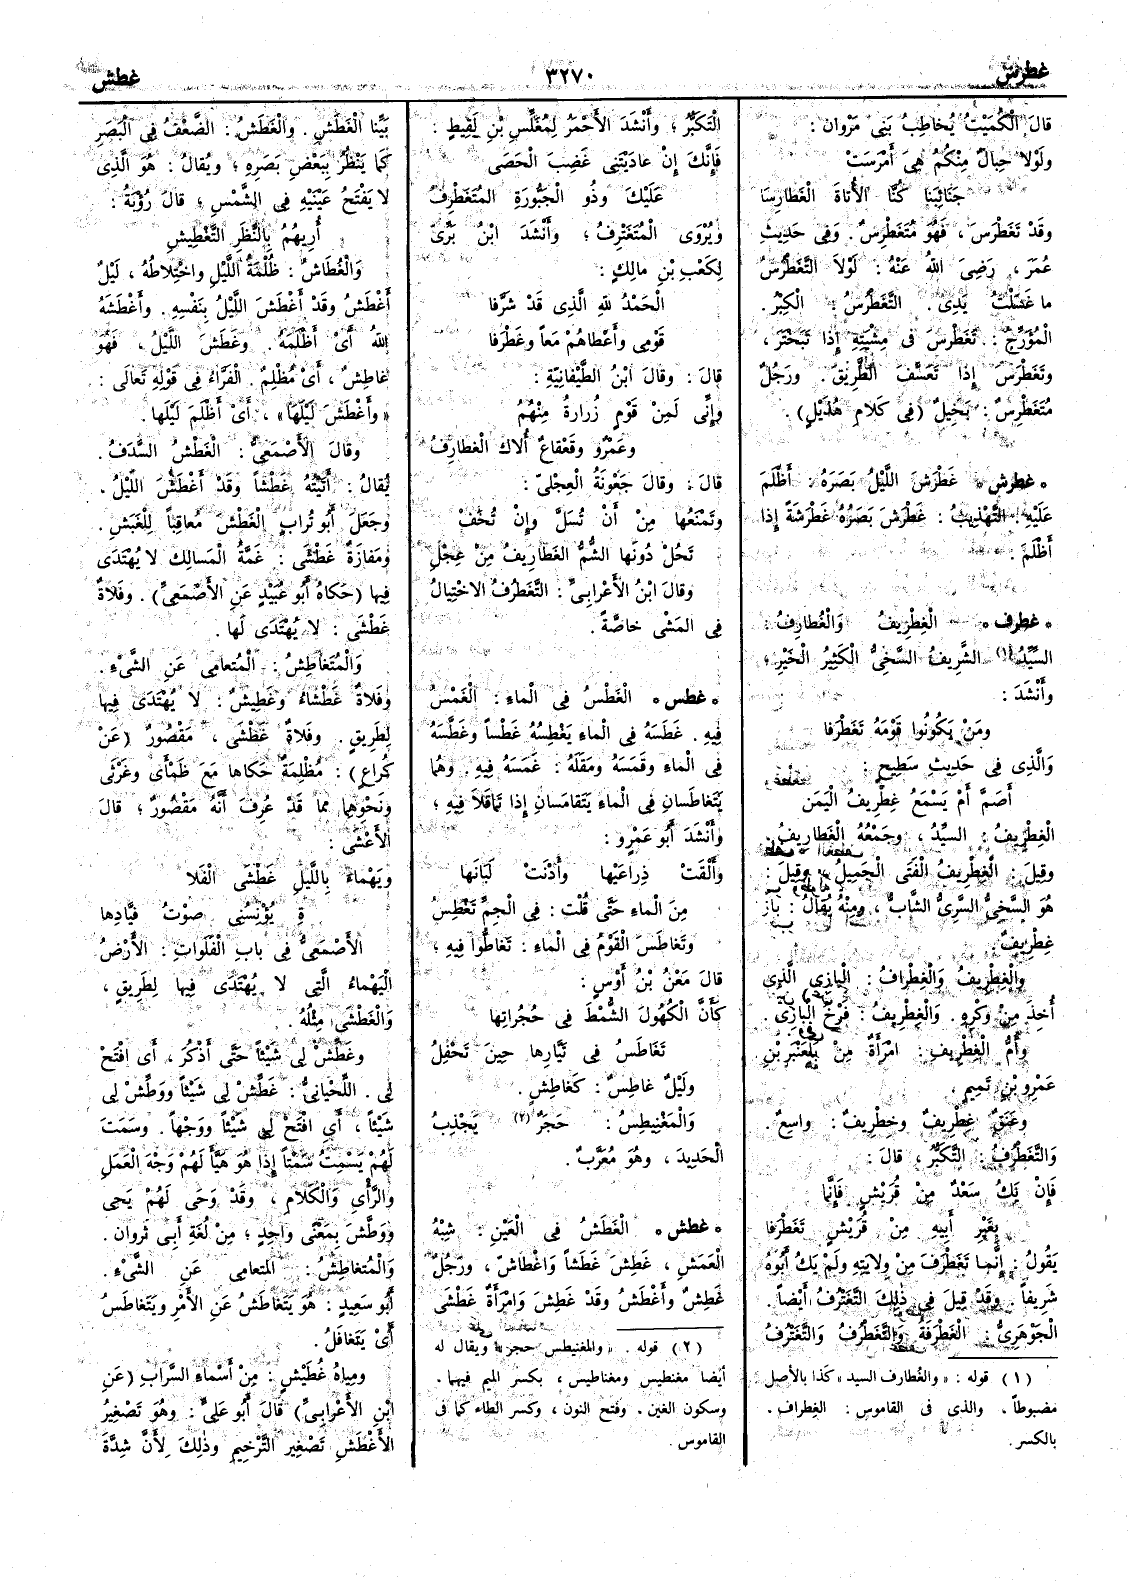 غطرس
٣٢٧٠
غطش
قالَ الْكُمَيْتُ يُخاطِبُ بَنِى مَرْوان :
ولَوْلا حِبالٌ مِنْكُمُ هِىَ أَمْرَسَتْ
جَنائِبَنا كُنَّا الأُتاةَ الْغَطارِسَا
وقَدْ تَغَطْرَسَ ، فَهُوَ مُتَغَطْرِسٌ. وفِى حَدِيثِ
عُمَرَ ، رَضِىَ اللهُ عَنْهُ : لَوْلاَ التَّغَطْرُسُ
ما غَسَلْتُ يَدِى. التَّغَطْرُسُ : الْكِبْرُ.
الْمُؤَرِّجُ : تَغَطْرَسَ فى مِشْيَتِهِ إِذَا تَبَخْتَرَ ،
وتَغَطْرَسَ إِذا تَعَسَّفَ الطَّرِيقَ. ورَجُلٌ
مُتَغَطْرِسٌ : بَخِيلٌ (فِى كَلامِ هُذَيْلٍ).
• غطرش • غَطْرَشَ اللَّيْلُ بَصَرَهُ : أَظْلَمَ
عَلَيْهِ. التَّهْذِيبُ : غَطْرَشَ بَصَرُهُ غَطْرَشَةً إِذا
أَظْلَمَ .
• غطرف • الْغِطْرِيفُ وَالْغُطارِفُ :
السَّيِّدُ(١) الشَّرِيفُ السَّخِىُّ الْكَثِيرُ الْخَيْرِ ؛
وأَنْشَدَ :
ومَنْ يَكُونُوا قَوْمَهُ تَغَطْرَفا
وَالَّذِى فِى حَدِيثِ سَطِيحٍ :
أَصَمَّ أَمْ يَسْمَعُ غِطْرِيفُ الْيَمَن
الْغِطْرِيفُ : السَّيِّدُ ، وجَمْعُهُ الْغَطارِيفُ.
وقِيلَ : الْغِطْرِيفُ الْفَتَى الْجَمِيلُ ، وقِيلَ :
هُوَ السَّخِىُّ السَّرِىُّ الشَّابُّ ، ومِنْهُ يُقالُ : بازٌ
غِطْرِيفٌ.
والْغِطْرِيفُ وَالْغِطْرافُ : الْبازِى الَّذِى
أُخِذَ مِنْ وَكْرِهِ. وَالْغِطْرِيفُ : فَرْخُ الْبازِى.
وأُمُّ الْغِطْرِيفِ : امْرَأَةٌ مِنْ بَلْعَنْبَرِ بْنِ
عَمْرِو بْنِ تَمِيمٍ.
وعَنَقٌ غِطْرِيفٌ وخِطْرِيفٌ : واسِعٌ.
وَالتَّغَطْرُفُ : التَّكَبُّرُ ، قالَ :
فَإِنْ يَكُ سَعْدٌ مِنْ قُرَيْشٍ فَإِنَّما
بِغَيْرِ أَبِيهِ مِنْ قُرَيْشٍ تَغَطْرَفا
يَقُولُ : إِنَّما تَغَطْرَفَ مِنْ وِلايَتِهِ ولَمْ يَكُ أَبُوهُ
شَرِيفاً. وقَدْ قِيلَ فِى ذلِكَ التَّغَتْرُفُ أَيْضاً.
الْجَوْهَرِىُّ : الْغَطْرَفَةُ والتَّغَطْرُفُ وَالتَّغَتْرُفُ
(١) قوله : « والغُطارف السيد » كذا بالأصل
مضبوطاً. والذى فى القاموس : الغِطراف.
بالكسر.
الْتَكَبُّرُ ؛ وأَنْشَدَ الأَحْمَرُ لِمُغَلِّسِ بْنِ لَقِيطٍ :
فَإِنَّكَ إِنْ عادَيْتَنِى غَضِبَ الْحَصَى
عَلَيْكَ وَذُو الْجَبُّورَةِ الْمُتَغَطْرِفُ
ويُرْوَى الْمُتَغَتْرِفُ ؛ وأَنْشَدَ ابْنُ بَرِّىّ
لِكَعْبِ بْنِ مالِكٍ :
الْحَمْدُ لله الَّذِى قَدْ شَرَّفا
قَوْمِى وأَعْطاهُمْ مَعاً وغَطْرَفا
قالَ : وقالَ ابْنُ الطَّيْفانِيَّةِ :
وإِنِّى لَمِنْ قَوْمٍ زُرارةُ مِنْهُمُ
وعَمْرٌو وقَعْقاعٌ أُلاكَ الْغَطارِفُ
قالَ : وقالَ جَعْونَةُ الْعِجْلِىّ :
وتَمْنَعُها مِنْ أَنْ تُسَلَّ وإِنْ تُخَفْ
تَحُلْ دُونَها الشُّمُّ الْغَطَارِيفُ مِنْ عِجْلِ
وقالَ ابْنُ الأَعْرابِىِّ : التَّغَطْرُفُ الاخْتِيالُ
فِى الْمَشْىِ خاصَّةً.
• غطس • الْغَطْسُ فِى الْماءِ : الْغَمْسُ
فِيهِ. غَطَسَهُ فِى الْماءِ يَغْطِسُهُ غَطْساً وغَطَّسَهُ
فِى الْماءِ وقَمَسَهُ ومَقَلَهُ : غَمَسَهُ فِيهِ. وهُما
يَتَغاطَسانِ فِى الْماءِ يَتَقامَسانِ إِذا تَماقَلاَ فِيهِ ؛
وأَنْشَدَ أَبُو عَمْرٍو :
وأَلْقَتْ ذِراعَيْها وأَدْنَتْ لَبَانَها
مِنَ الْماءِ حَتَّى قُلْتُ : فِى الْجَمِّ تَغْطِسُ
وتَغاطَسَ الْقَوْمُ فِى الْماءِ : تَغاطُّوا فِيهِ ؛
قالَ مَعْنُ بْنُ أَوْسٍ :
كَأَنَّ الْكُهُولَ الشُّمْطَ فِى حُجُراتِها
تَغَاطَسُ فِى تَيَّارِها حِينَ تَحْفِلُ
ولَيْلٌ غاطِسٌ : كَغاطِشٍ.
وَالْمَغْنِيطِسُ : حَجَرٌ(٢) يَجْذِبُ
الْحَدِيدَ ، وهُوَ مُعَرَّبٌ.
• غطش • الْغَطَشُ فِى الْعَيْنِ : شِبْهُ
الْعَمَشِ ، غَطِشَ غَطَشاً وَاغْطَاشَّ ، ورَجُلٌ
غَطِشٌ وأَغْطَشُ وقَدْ غَطِشَ وَامْرَأَةٌ غَطْشَى
(٢) قوله. « والمغنيطس حجر » ويقال له
أيضا مغنطيس ومغناطيس ، بكسر الميم فيهما.
وسكون الغين. وفتح النون ، وكسر الطاء كما فى
القاموس.
بَيِّنا الْغَطَشِ. والْغَطَشُ : الضَّعْفُ فِى الْبَصَرِ
كَما يَنْظُرُ بِبَعْضِ بَصَرِهِ ؛ ويُقالُ : هُوَ الَّذِى
لا يَفْتَحُ عَيْنَيْهِ فِى الشَّمْسِ ؛ قالَ رُؤْبَةُ :
أُرِيهُمُ بِالنَّظَرِ التَّغْطِيشِ
وَالْغُطاشُ : ظُلْمَةُ اللَّيْلِ واخْتِلاطُهُ ، لَيْلٌ
أَغْطَشُ وقَدْ أَغْطَشَ اللَّيْلُ بِنَفْسِهِ. وأَغْطَشَهُ
اللهُ أَىْ أَظْلَمَهُ. وغَطَشَ اللَّيْلُ ، فَهُوَ
غاطِشٌ ، أَىْ مُظْلِمٌ. الْفَرَّاءُ فِى قَوْلِهِ تَعالَى :
« وأَغْطَشَ لَيْلَها » ، أَىْ أَظْلَمَ لَيْلَها.
وقالَ الأَصْمَعِىُّ : الْغَطْشُ السَّدَفُ.
يُقالُ : أَتَيْتُهُ غَطْشاً وقَدْ أَغْطَشَ اللَّيْلُ.
وجَعَلَ أَبُو تُرابٍ الْغَطْشَ مُعاقِباً لِلْغَبَشِ.
ومَفازَةٌ غَطْشَى : غَمَّةُ الْمَسالِكِ لا يُهْتَدَى
فِيها (حَكاهُ أَبُو عُبَيْدٍ عَنِ الأَصْمَعِىِّ). وفَلاةٌ
غَطْشَى : لا يُهْتَدَى لَها.
وَالْمُتَغاطِشُ : الْمُتعامِى عَنِ الشَّىْءِ.
وفَلاةٌ غَطْشاءُ وغَطِيشٌ : لا يُهْتَدَى فِيها
لِطَرِيقٍ. وفَلاةٌ غَطْشَى ، مَقْصُورٌ (عَنْ
كُراعٍ) : مُظْلِمَةٌ حَكاها مَعَ ظَمْأَى وغَرْثَى
ونَحْوِهِما مِمَّا قَدْ عُرِفَ أَنَّهُ مَقْصُورٌ ؛ قالَ
الأَعْشَى :
ويَهْماءُ بِاللَّيْلِ غَطْشَى الْفَلا
ةِ يُؤْنِسُنِى صَوْتُ فَيَّادِها
الأَصْمَعِىُّ فِى بابِ الْفَلَواتِ : الأَرْضُ
الْيَهْماءُ الَّتِى لا يُهْتَدَى فِيها لِطَرِيقٍ ،
وَالْغَطْشَى مِثْلُهُ.
وغَطِّشْ لِى شَيْئاً حَتَّى أَذْكُرَ ، أَى افْتَحْ
لِى. اللِّحْيانِىُّ : غَطِّشْ لِى شَيْئاً ووَطِّشْ لِى
شَيْئاً ، أَىِ افْتَحْ لِى شَيْئاً ووَجْهاً. وسَمَتَ
لَهُمْ يَسْمِتُ سَمْتاً إِذا هُوَ هَيَّأَ لَهُمْ وَجْهَ الْعَمَلِ
والرَّأْىِ وَالْكَلامِ ، وقَدْ وَحَى لَهُمْ يَحِى
ووَطَّشَ بِمَعْنًى واحِدٍ ؛ مِنْ لُغَةِ أَبِى ثَروان.
وَالْمُتَغاطِشُ : المتعامِى عَنِ الشَّىْءِ.
أَبُو سَعِيدٍ : هُوَ يَتَغاطَشُ عَنِ الأَمْرِ ويَتَغاطَسُ
أَىْ يَتَغافَلُ.
ومِياهُ غُطَيْشٍ : مِنْ أَسْماءِ السَّرابِ (عَنِ
ابْنِ الأَعْرابِىِّ) قالَ أَبُو عَلِىٍّ : وهُوَ تَصْغِيرُ
الأَغْطَشِ تَصْغِيرَ التَّرْخِيمِ وذلِكَ لأَنَّ شِدَّةَ